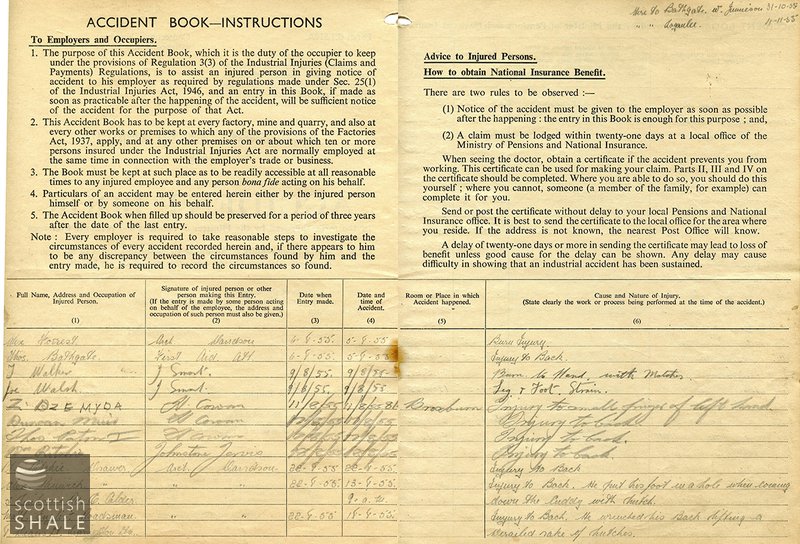 ACCIDENT BOOK—INSTRUCTIONS
To Employers and Occupiers.
1. The purpose of this Accident Book, which it is the duty of the occupier to keep
under the provisions of Regulation 3(3) of the Industrial Injuries (Claims and
Payments) Regulations, is to assist an injured person in giving notice of
accident to his employer as required by regulations made under Sec. 25(1)
of the Industrial Injuries Act, 1946, and an entry in this Book, if made as
soon as practicable after the happening of the accident, will be sufficient notice
of the accident for the purpose of that Act.
2. This Accident Book has to be kept at every factory, mine and quarry, and also at
every other works or premises to which any of the provisions of the Factories
Act, 1937, apply, and at any other premises on or about which ten or more
persons insured under the Industrial Injuries Act are normally employed at
the same time in connection with the employer's trade or business.
3. The Book must be kept at such place as to be readily accessible at all reasonable
times to any injured employee and any person bona fide acting on his behalf.
4. Particulars of an accident may be entered herein either by the injured person
himself or by someone on his behalf.
5. The Accident Book when filled up should be preserved for a period of three years
after the date of the last entry.
Note : Every employer is required to take reasonable steps to investigate the
circumstances of every accident recorded herein and, if there appears to him
to be any discrepancy between the circumstances found by him and the
entry made, he is required to record the circumstances so found.
to Bathgate. 31-10-55
11-11-55
Advice to Injured Persons.
How to obtain National Insurance Benefit.
There are two rules to be observed :—
(1) Notice of the accident must be given to the employer as soon as possible
after the happening : the entry in this Book is enough for this purpose ; and,
(2) A claim must be lodged within twenty-one days at a local office of the
Ministry of Pensions and National Insurance.
When seeing the doctor, obtain a certificate if the accident prevents you from
working. This certificate can be used for making your claim. Parts II, III and IV on
the certificate should be completed. Where you are able to do so, you should do this
yourself ; where you cannot, someone (a member of the family, for example) can
complete it for you.
Send or post the certificate without delay to your local Pensions and National
Insurance office. It is best to send the certificate to the local office for the area where
you reside. If the address is not known, the nearest Post Office will know.
A delay of twenty-one days or more in sending the certificate may lead to loss of
benefit unless good cause for the delay can be shown. Any delay may cause
difficulty in showing that an industrial accident has been sustained.
Full Name, Address and Occupation of
Injured Person.
(1)
Signature of injured person or other
person making this Entry.
(If the entry is made by some person acting
on behalf of the employee, the address and
occupation of such person must also be given.)
(2)
Date when
Entry made.
(3)
Date and
time of
Accident.
(4)
Room or Place in which
Accident happened.
(5)
Cause and Nature of Injury.
(State clearly the work or process being performed at the time of the accident.)
(6)
Forrest. Davidson 6-8-55. 5-8-55. Burn Injury.
Thos. Bathgate. First Aid Att. 6-8-55. 5-8-55. Injury to Back.
J Walker J Smart. 9/8/55 9/8/55 Burn to Hand with Matches.
Joe Walsh J Smart. 9/8/55 9/8/55 Leg & Foot Strain.
Z. DZEMYDA H Cowan 11/8/55 Broxburn Injury to small finger of left hand
Duncan H Cowan Injury to back
Injury to back.
Johnstone Jarvis Injury to back.
Davidson 22-8-55 22-8-55 Injury to Back
" " 22-8-55 13-8-55. Injury to Back. He put his foot in a hole when coming
9. a.m. down the Cuddy with hutch.
" " 22-8-55. 18-8-55. Injury to Back. He wrenched his Back lifting a
derailed rake of hutches.
scottish
SHALE